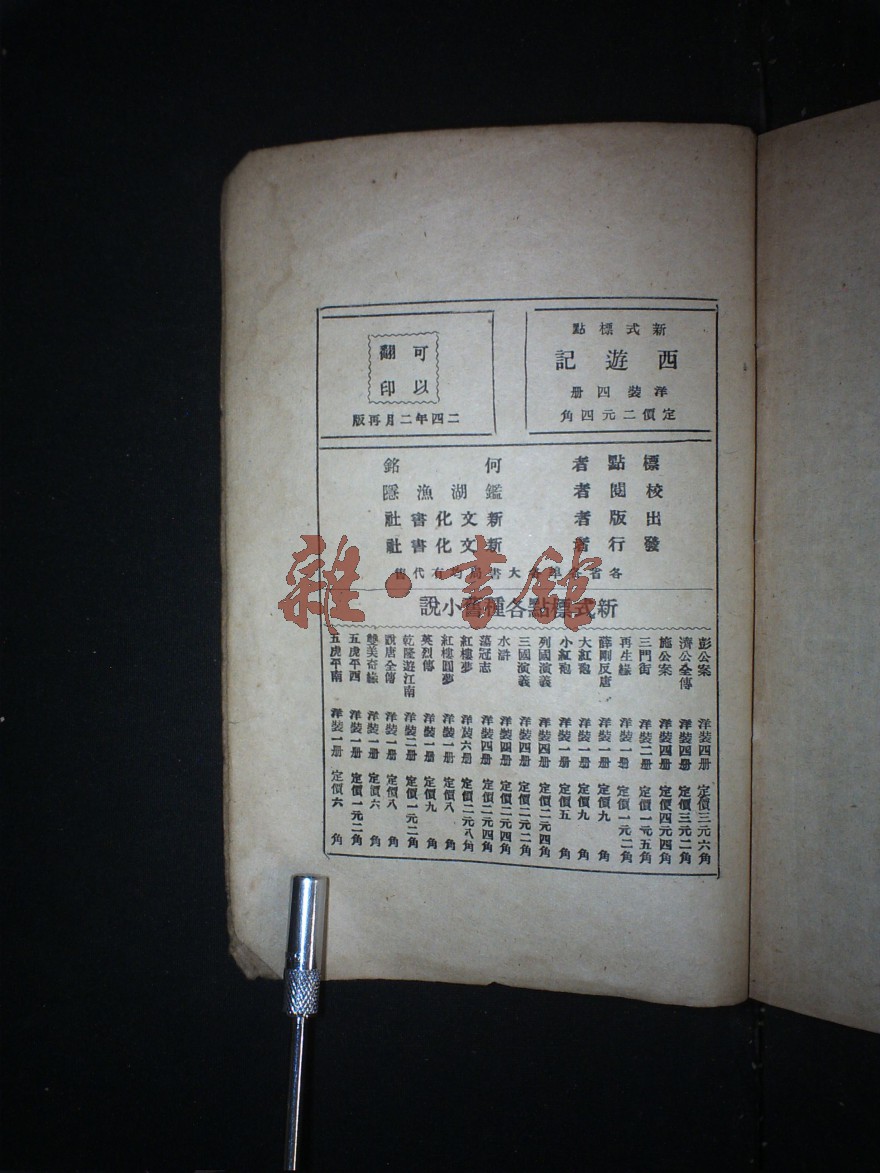 新式標點
西遊記
洋裝四册
定價二元四角
可以
翻印
二四年二月再版
標點者 何銘
校閱者 鑑湖漁隱
出版者 新文化書社
發行者 新文化書社
各省各埠各大書局均有代售
新式標點各種舊小說
彭公案 洋裝四册 定價三元六角
濟公全傳 洋裝四册 定價三元二角
施公案 洋裝四册 定價四元四角
三門街 洋裝二册 定價一元五角
再生緣 洋裝一册 定價一元二角
薛剛反唐 洋裝一册 定價九角
大紅袍 洋裝一册 定價九角
小紅袍 洋裝一册 定價五角
列國演義 洋裝四册 定價二元四角
三國演義 洋裝四册 定價二元二角
水滸 洋裝四册 定價二元四角
蕩寇志 洋裝四册 定價二元四角
紅樓夢 洋裝六册 定價二元八角
紅樓圓夢 洋裝一册 定價八角
英烈傳 洋裝一册 定價九角
乾隆遊江南 洋裝二册 定價一元二角
說唐全傳 洋裝一册 定價八角
雙美奇緣 洋裝一册 定價六角
五虎平西 洋裝一册 定價一元二角
五虎平南 洋裝一册 定價六角
雜·書館